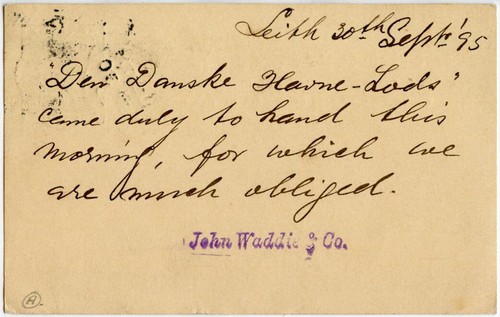 Leith 30th Septr '95
"Den Danske Havne-Lods"
came duly to hand this
morning, for which we
are much obliged.
John Waddie & Co.
A